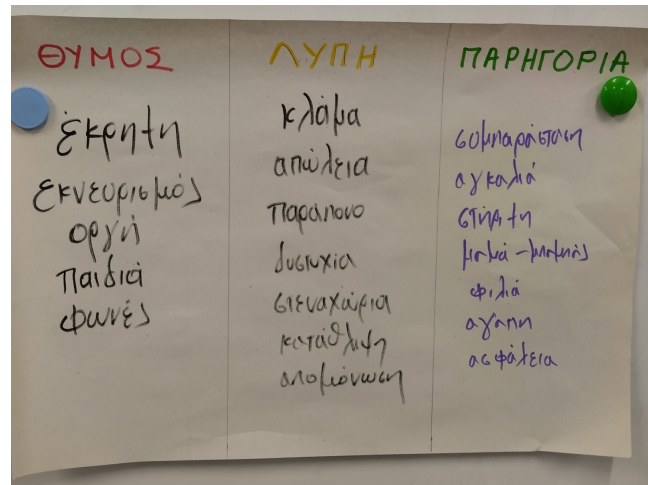 ΘΥΜΟΣ
έκρηξη
εκνευρισμός
οργή
παιδιά
φωνές
ΛΥΠΗ
κλάμα
απώλεια
παράπονο
δυστυχία
στεναχώρια
κατάθλιψη
απομόνωση
ΠΑΡΗΓΟΡΙΑ
συμπαράσταση
αγκαλιά
στήριξη
μαμά - μπαμπάς
φιλιά
αγάπη
ασφάλεια